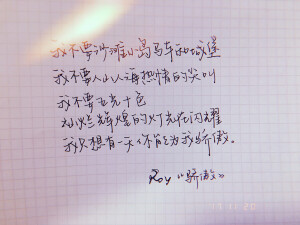 我不要沙滩小岛马车和城堡
我不要人山人海热情的尖叫
我不要五光十色
和灿烂辉煌的灯光在闪耀
我只想有一天你能为我骄傲。
Roy 《骄傲》